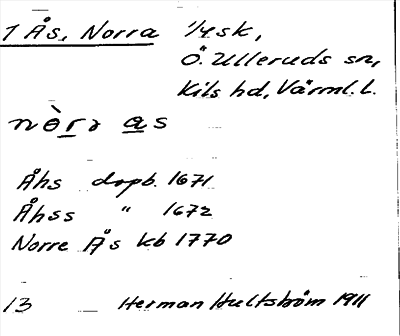 1 Ås, Norra 1/4 sk,
Ö. Ulleruds sn,
Kils hd, Värml. l.
nòrɔ as
Åhs dopb. 1671
Åhss " 1672
Norre Ås kb 1770
13 Herman Hultström 1911